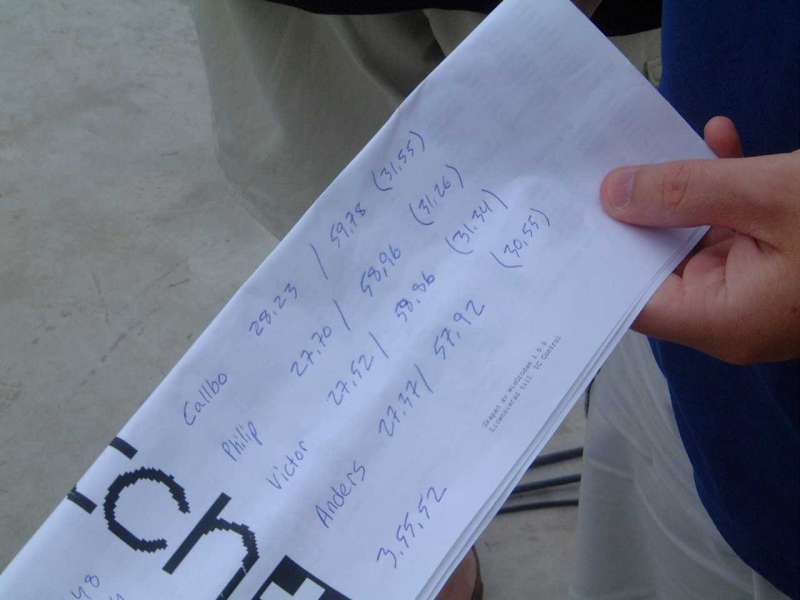 Callbo 28,23 / 59,78 (31,55)
Philip 27,70 / 58,96 (31,26)
Victor 27,52 / 58,86 (31,34)
Anders 27,37 / 57,92 (30,55)
3,55,52
Skapad av
Licensierad till: Control
ch
48